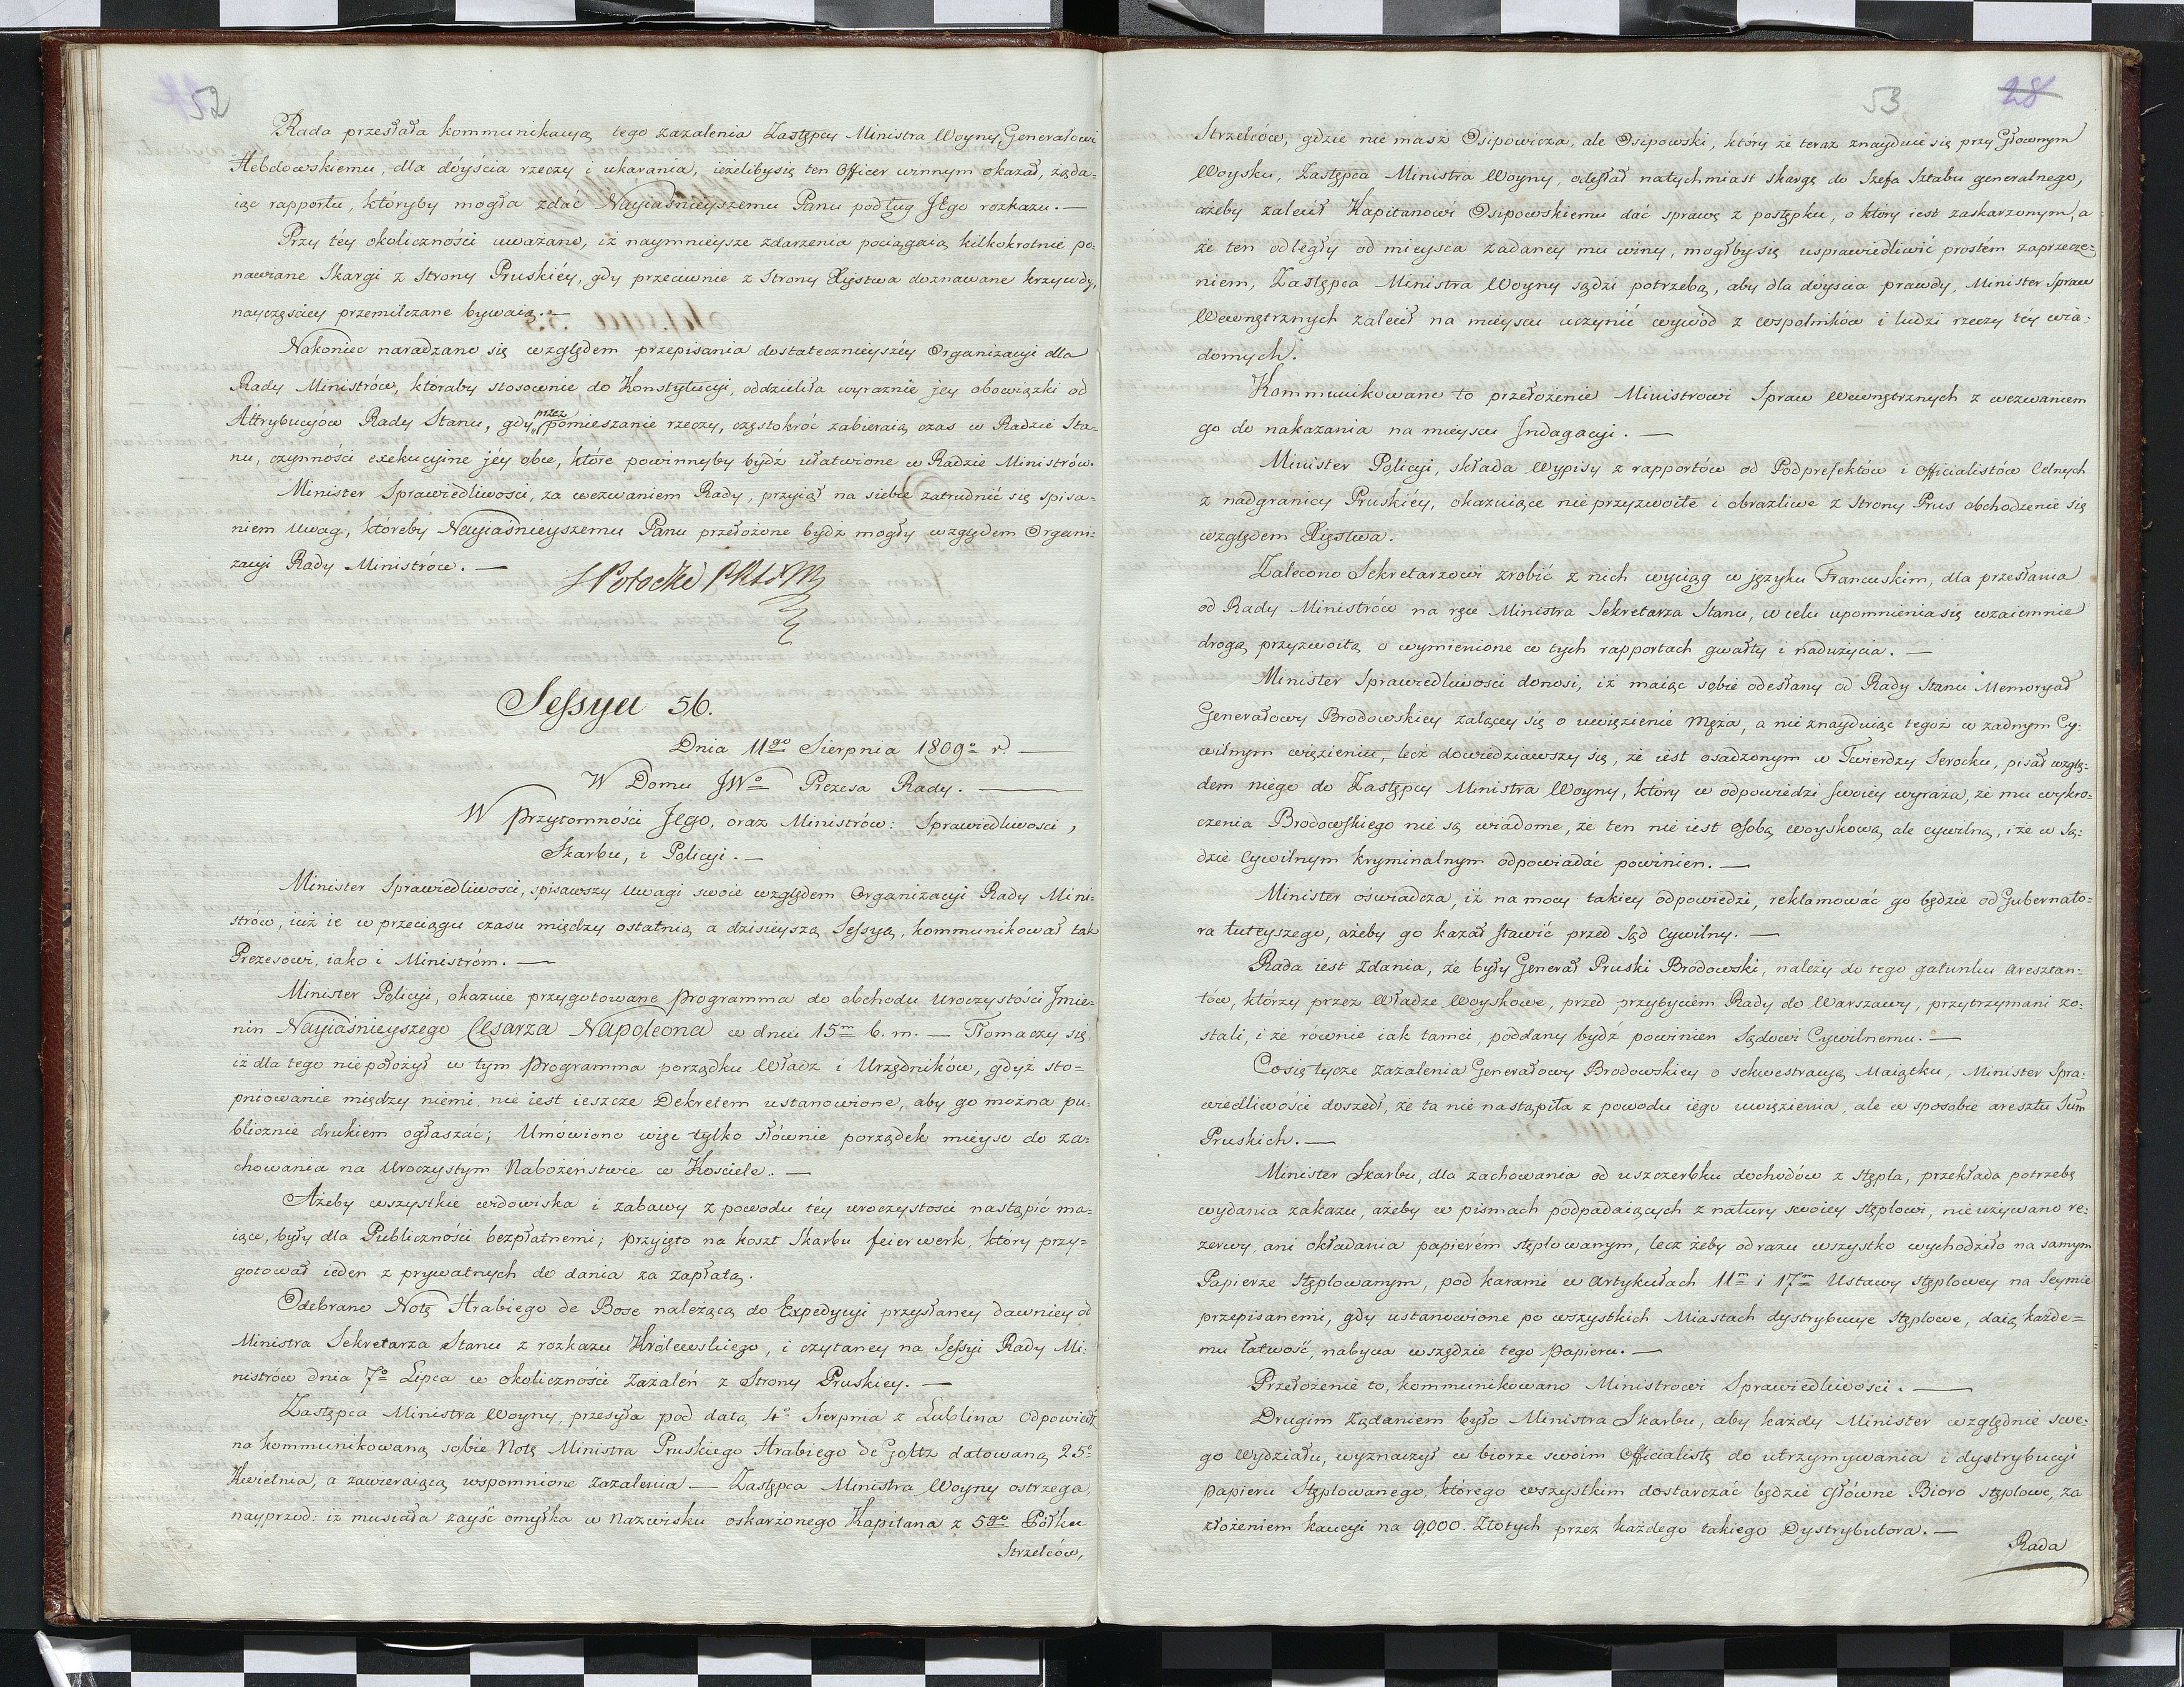 52
Rada przesłała kommunikacyą tego zażalenia Zastępcy Ministra Woyny, Generałowi
Hebdowskiemu, dla dóyścia rzeczy i ukarania, ieżelibysię ten Officer winnym okazał, żąda=
iąc rapportu, któryby mogła zdać Nayiaśnieyszemu Panu podług Jego rozkazu. —
Przy téy okoliczności uważano, iż naymnieysze zdarzenia pociągaią kilkokrotnie po=
nawiane Skargi z Strony Pruskiéy, gdy przeciwnie z Strony Xięstwa doznawane krzywdy,
nayczęściey przemilczane bywaią. —
Nakoniec naradzano się względem przepisania dostatecznieyszéy Organizacyi dla
Rady Ministrów, któraby stosownie do Konstytucyi, oddzieliła wyraznie jey obowiązki od
Attrybucyów Rady Stanu, gdy przez pomieszanie rzeczy, częstokróć zabieraią czas w Radzie Sta=
nu, czynności exekucyine jéy obce, które powinnyby bydź ułatwione w Radzie Ministrów.
Minister Sprawiedliwosci, za wezwaniem Rady, przyiął na siebie zatrudnić się spisa=
niem Uwag, któreby Nayiaśnieyszemu Panu przełożone bydź mogły względem Organi=
zacyi Rady Ministrów. —
SPotocki PRSM
Sessya 56.
Dnia 11go Sierpnia 1809o r. —
W Domu JWo Prezesa Rady. —
W Przytomności Jego, oraz Ministrów: Sprawiedliwosci,
Skarbu, i Policyi. —
Minister Sprawiedliwosci, spisawszy Uwagi swoie względem Organizacyi Rady Mini=
strów, iuż ie w przeciągu czasu między ostatnią a dzisieyszą Sessyą, kommunikował tak
Prezesowi, iako i Ministróm. —
Minister Policyi, okazuie przygotowane Programma do obchodu Uroczystości Jmie=
nin Nayiaśnieyszego Cesarza Napoleona w dniu 15m b. m. — Tłomaczy się,
iż dla tego niepołożył w tym Programma porządku Władz i Urzędników, gdyż sto=
pniowanie między niemi, nie iest ieszcze Dekretem ustanowione, aby go można pu=
blicznie drukiem ogłaszać; Umówiono więc tylko słównie porządek mieysc do za=
chowania na Uroczystym Nabożeństwie w Kosciele. —
Ażeby wszystkie widowiska i zabawy z powodu téy uroczystosci nastąpić ma=
iące, były dla Publiczności bezpłatnemi; przyięto na koszt Skarbu feierwerk, który przy=
gotował ieden z prywatnych do dania za zapłatą.
Odebrano Notę Hrabiego de Bose należącą do Expedycyi przysłaney dawniey od
Ministra Sekretarza Stanu z rozkazu Królewskiego, i czytaney na Sessyi Rady Mi=
nistrów dnia 7o Lipca w okoliczności Zażaleń z Strony Pruskiey. —
Zastępca Ministra Woyny, przesyła pod datą 4o Sierpnia z Lublina Odpowiedź
na kommunikowaną sobie Notę Ministra Pruskiego Hrabiego de Goltz datowaną 25o
Kwietnia, a zawieraiącą wspomnione Zażalenia — Zastępca Ministra Woyny ostrzega
nayprzod: iż musiała zayść omyłka w Nazwisku oskarżonego Kapitana z 5go Półku
Strzelców,
53
28
Strzelców, gdzie nie masz Osipowicza, ale Osipowski, który że teraz znayduie się przy Głownym
Woysku, Zastępca Ministra Woyny, odesłał natychmiast skargę do Szefa Sztabu generalnego,
ażeby zalecił Kapitanowi Osipowskiemu dać sprawę z postępku, o który iest zaskarżonym, a
że ten odległy od mieysca zadaney mu winy, mogłbysię usprawiedliwić prostém zaprzecze=
niem, Zastępca Ministra Woyny sądzi potrzebą, aby dla dóyścia prawdy, Minister Spraw
Wewnętrznych zalecił na mieyscu uczynić wywód z wspolników i ludzi rzeczy téy wia=
domych.
Kommunikowano to przełożenie Ministrowi Spraw Wewnętrznych z wezwaniem
go do nakazania na mieyscu Jndagacyi. —
Minister Policyi, składa Wypisy z rapportów od Podprefektów i Officialistów Celnych
z nadgranicy Pruskiéy, okazuiące nieprzyzwoite i obrazliwe z Strony Prus obchodzenie się
względem Xięstwa.
Zalecono Sekretarzowi zrobić z nich wyciąg w języku Francuskim, dla przesłania
od Rady Ministrów na ręce Ministra Sekretarza Stanu, w celu upomnienia się wzaiemnie
drogą przyzwoitą o wymienione w tych rapportach gwałty i nadużycia. —
Minister Sprawiedliwosci donosi, iż maiąc sobie odesłany od Rady Stanu Memoryał
Generałowy Brodowskiey żalącey się o uwięzienie Męża, a nie znayduiąc tegoż w żadnym Cy=
wilnym więzieniu, lecz dowiedziawszy się, że iest osadzonym w Twierdzy Serocku, pisał wzglę=
dem niego do Zastępcy Ministra Woyny, który w odpowiedzi swoiey wyraża, że mu wykro=
czenia Brodowskiego nie są wiadome, że ten nie iest osobą woyskową ale cywilną, i że w Są=
dzie Cywilnym kryminalnym odpowiadać powinien. —
Minister oświadcza, iż na mocy takiey odpowiedzi, reklamować go będzie od Gubernato=
ra tuteyszego, ażeby go kazał stawić przed Sąd Cywilny. —
Rada iest Zdania, że były Generał Pruski Brodowski, należy do tego gatunku aresztan=
tów, którzy przez Władze Woyskowe, przed przybyciem Rady do Warszawy, przytrzymani zo=
stali, i że równie iak tamci, poddany bydź powinien Sądowi Cywilnemu. —
Cosię tycze zażalenia Generałowy Brodowskiey o sekwestracyą Maiątku, Minister Spra=
wiedliwości doszedł, że ta nie nastąpiła z powodu iego uwięzienia, ale w sposobie aresztu Sum
Pruskich. —
Minister Skarbu, dla zachowania od uszczerbku dochodów z Stępla, przekłada potrzebę
wydania zakazu, ażeby w pismach podpadaiących z natury swoiey stęplowi, nieużywano re=
zerwy, ani okładania papierém stęplowanym, lecz żeby odrazu wszystko wychodziło na samym
Papierze Stęplowanym, pod karami w Artykułach 11m i 17m Ustawy stęplowey na Seymie
przepisanemi, gdy ustanowione po wszystkich Miastach dystrybucye Stęplowe, daią każde=
mu łatwość, nabycia wszędzie tego Papieru. —
Przełożenie to, kommunikowano Ministrowi Sprawiedliwosci. —
Drugim Żądaniem było Ministra Skarbu, aby każdy Minister względnie swe=
go Wydziału, wyznaczył w biorze swoim Officialistę do utrzymywania i dystrybucyi
Papieru Stęplowanego, którego wszystkim dostarczać będzie Główne Bioro stęplowe, za
złożeniem kaucyi na 9,000. Złotych przez każdego takiego Dystrybutora. —
Rada